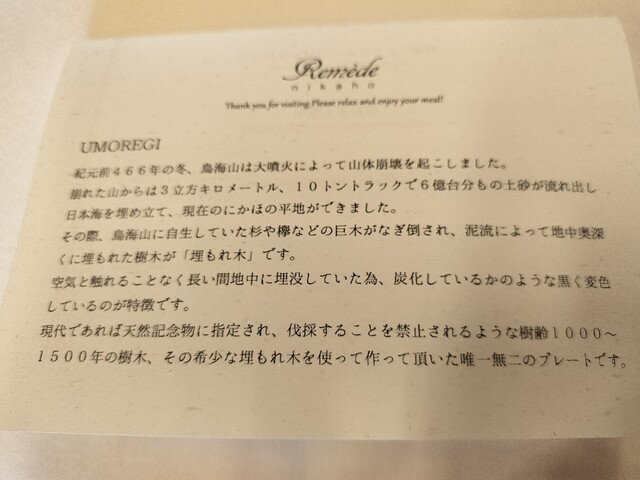 Remède
nikaho
Thank you for visiting Please relax and enjoy your meal!
UMOREGI
紀元前４６６年の冬、鳥海山は大噴火によって山体崩壊を起こしました。
崩れた山からは３立方キロメートル、１０トントラックで６億台分もの土砂が流れ出し
日本海を埋め立て、現在のにかほの平地ができました。
その際、鳥海山に自生していた杉や欅などの巨木がなぎ倒され、泥流によって地中奥深
くに埋もれた樹木が「埋もれ木」です。
空気と触れることなく長い間地中に埋没していた為、炭化しているかのような黒く変色
しているのが特徴です。
現代であれば天然記念物に指定され、伐採することを禁止されるような樹齢１０００～
１５００年の樹木、その希少な埋もれ木を使って作って頂いた唯一無二のプレートです。